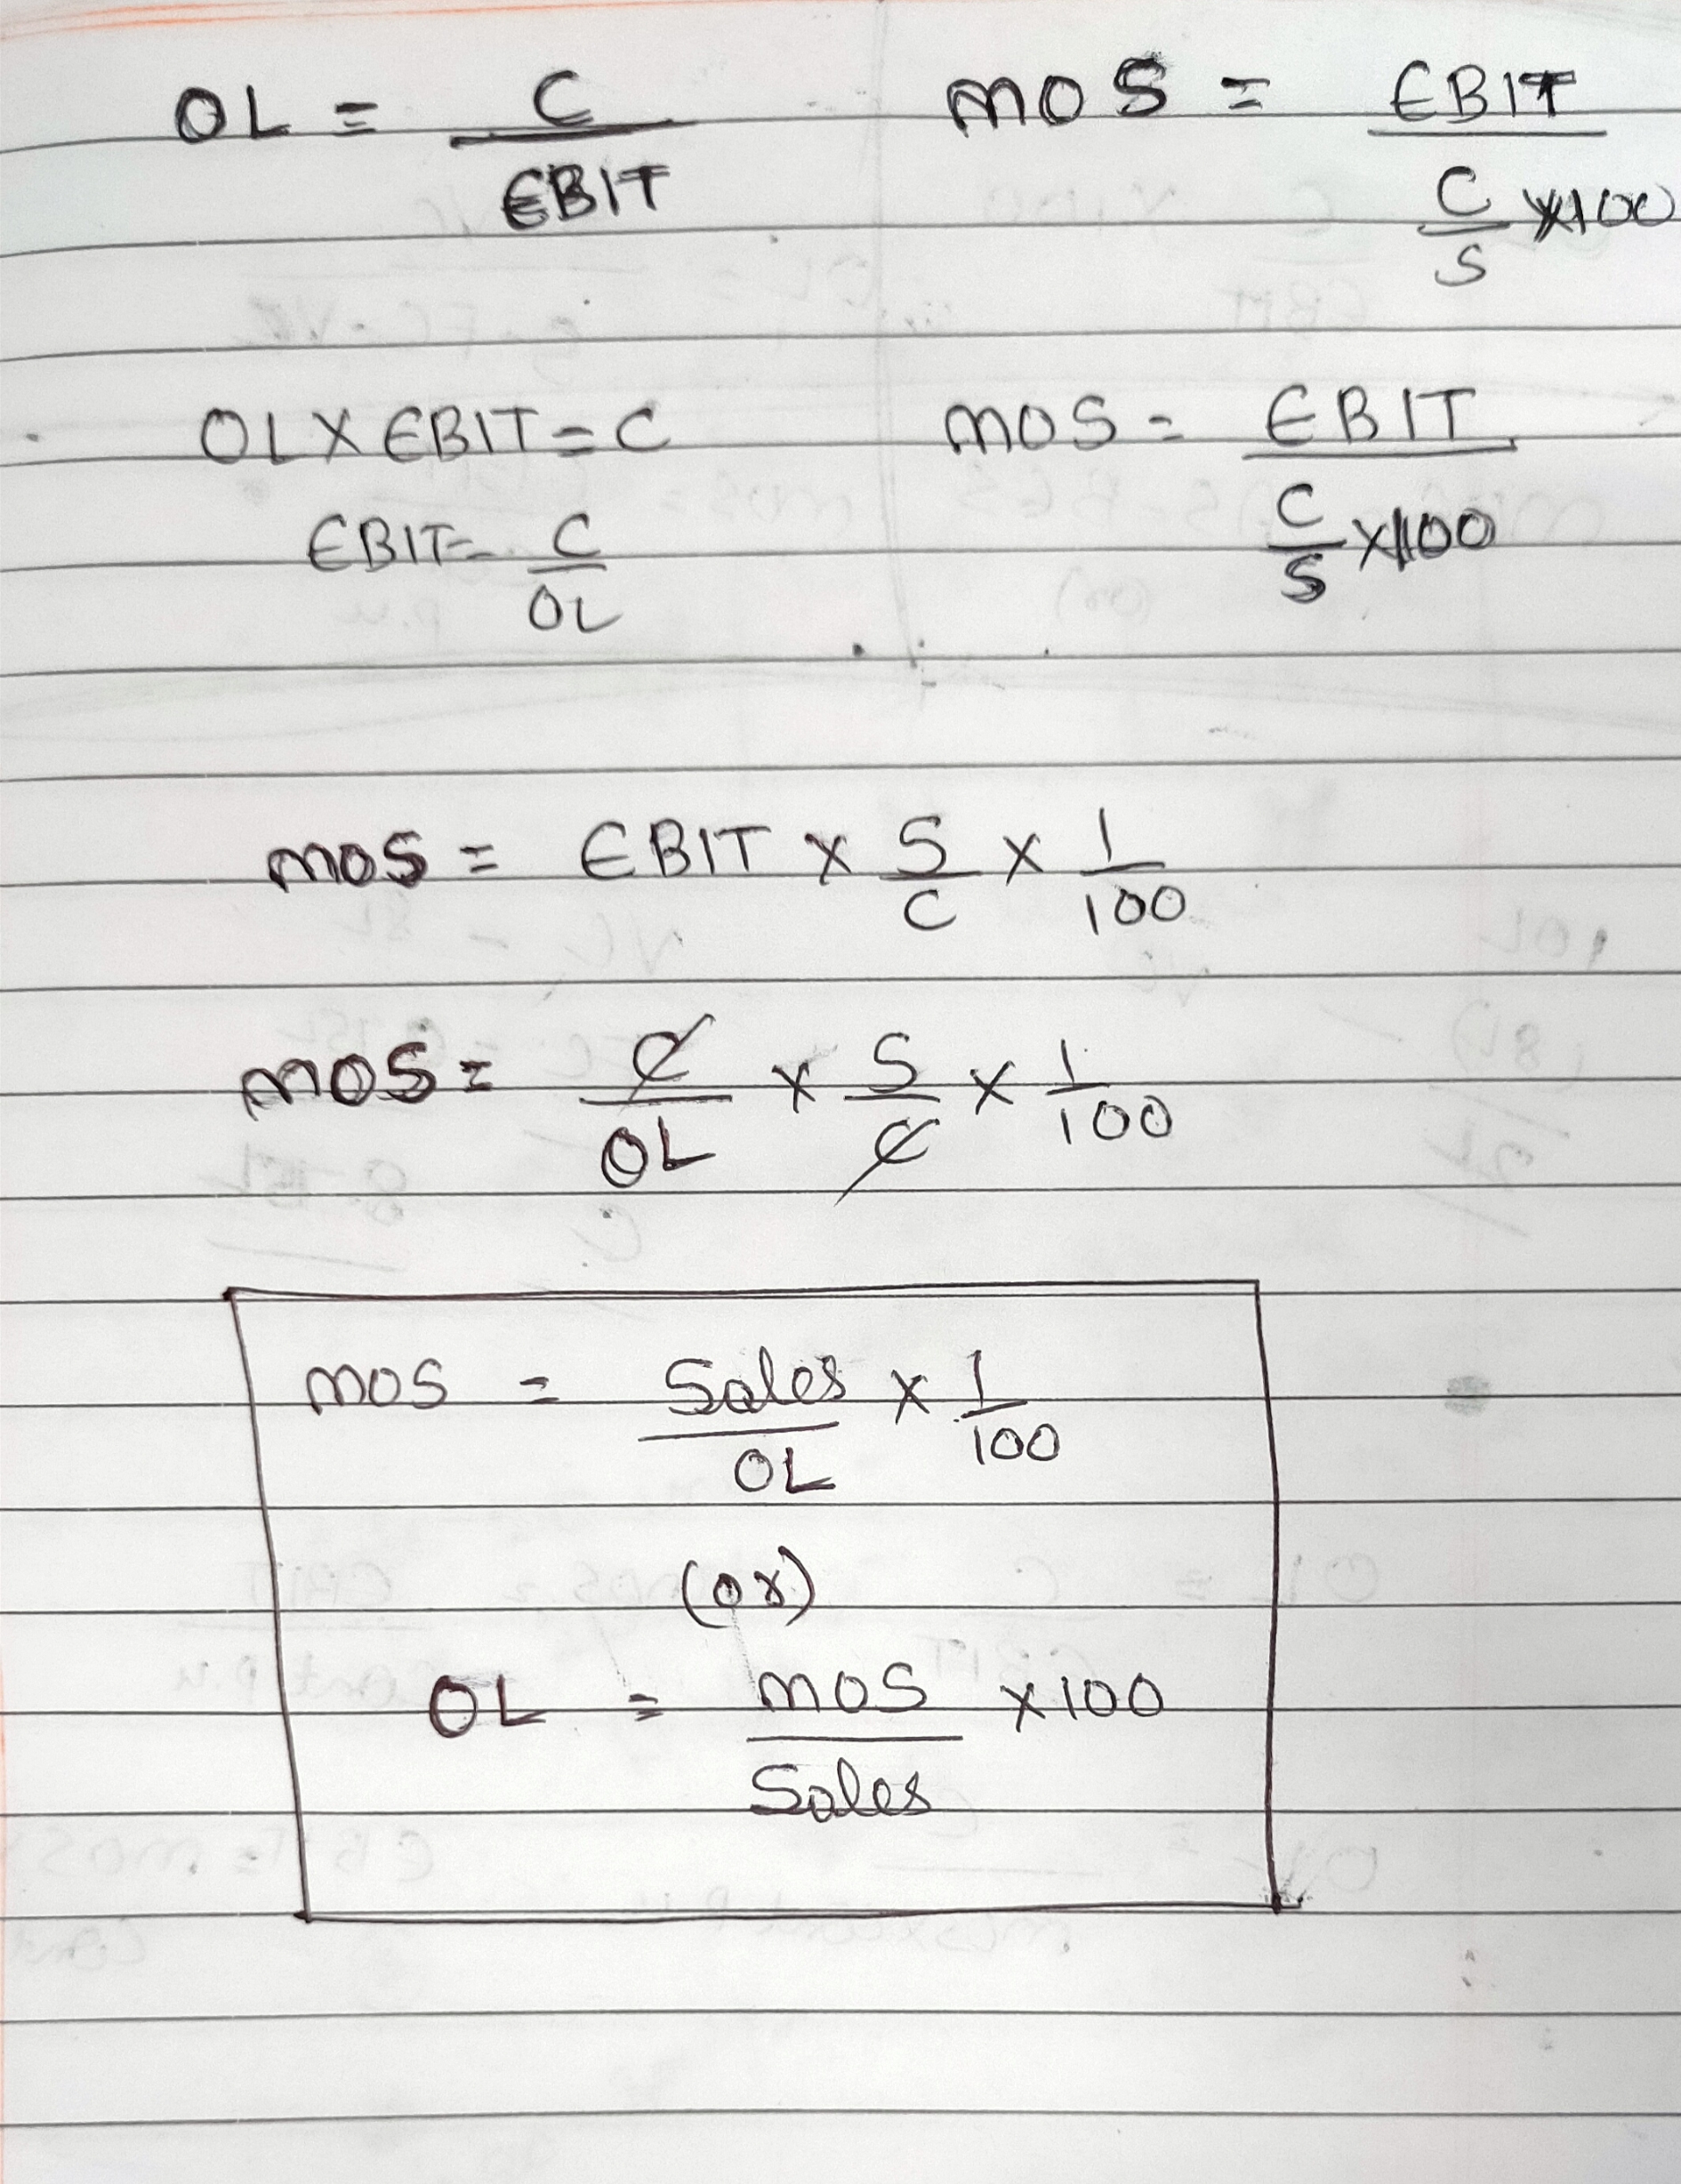 OL = C / EBIT
MOS = EBIT / C/S x100
OL X EBIT = C
EBIT = C / OL
MOS = EBIT / C/S x100
MOS = EBIT x S/C x 1/100
MOS = C/OL x S/C x 1/100
MOS = Sales/OL x 1/100
(or)
OL = MOS/Sales x100